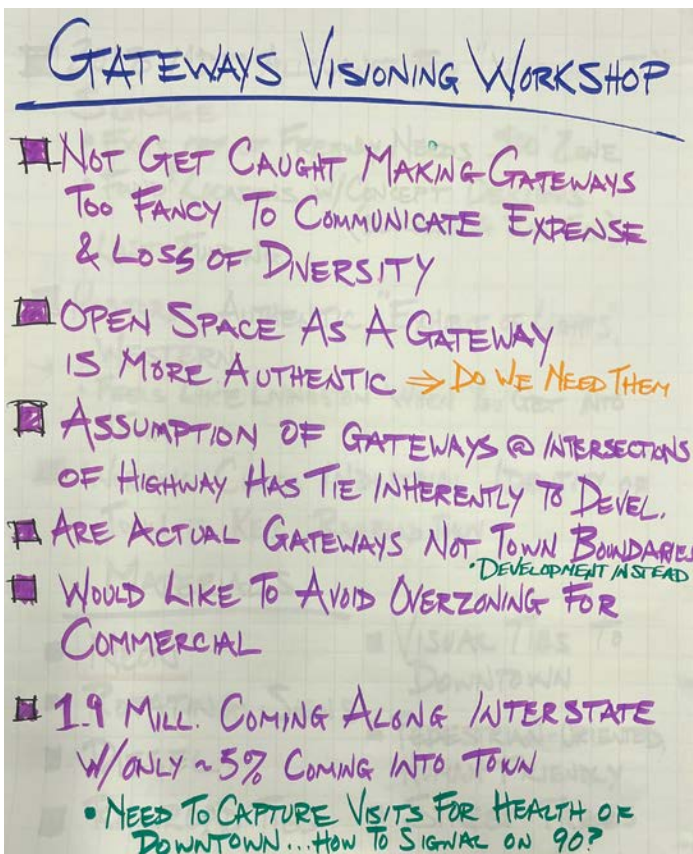 GATEWAYS VISIONING WORKSHOP
NOT GET CAUGHT MAKING GATEWAYS
TOO FANCY TO COMMUNICATE EXPENSE
& LOSS OF DIVERSITY
OPEN SPACE AS A GATEWAY
IS MORE AUTHENTIC ⇒ DO WE NEED THEM
ASSUMPTION OF GATEWAYS @ INTERSECTIONS
OF HIGHWAY HAS TIE INHERENTLY TO DEVEL.
ARE ACTUAL GATEWAYS NOT TOWN BOUNDARIES
• DEVELOPMENT INSTEAD
WOULD LIKE TO AVOID OVERZONING FOR
COMMERCIAL
1.9 MILL. COMING ALONG INTERSTATE
W/ONLY ~5% COMING INTO TOWN
• NEED TO CAPTURE VISITS FOR HEALTH OF
DOWNTOWN... HOW TO SIGNAL ON 90?